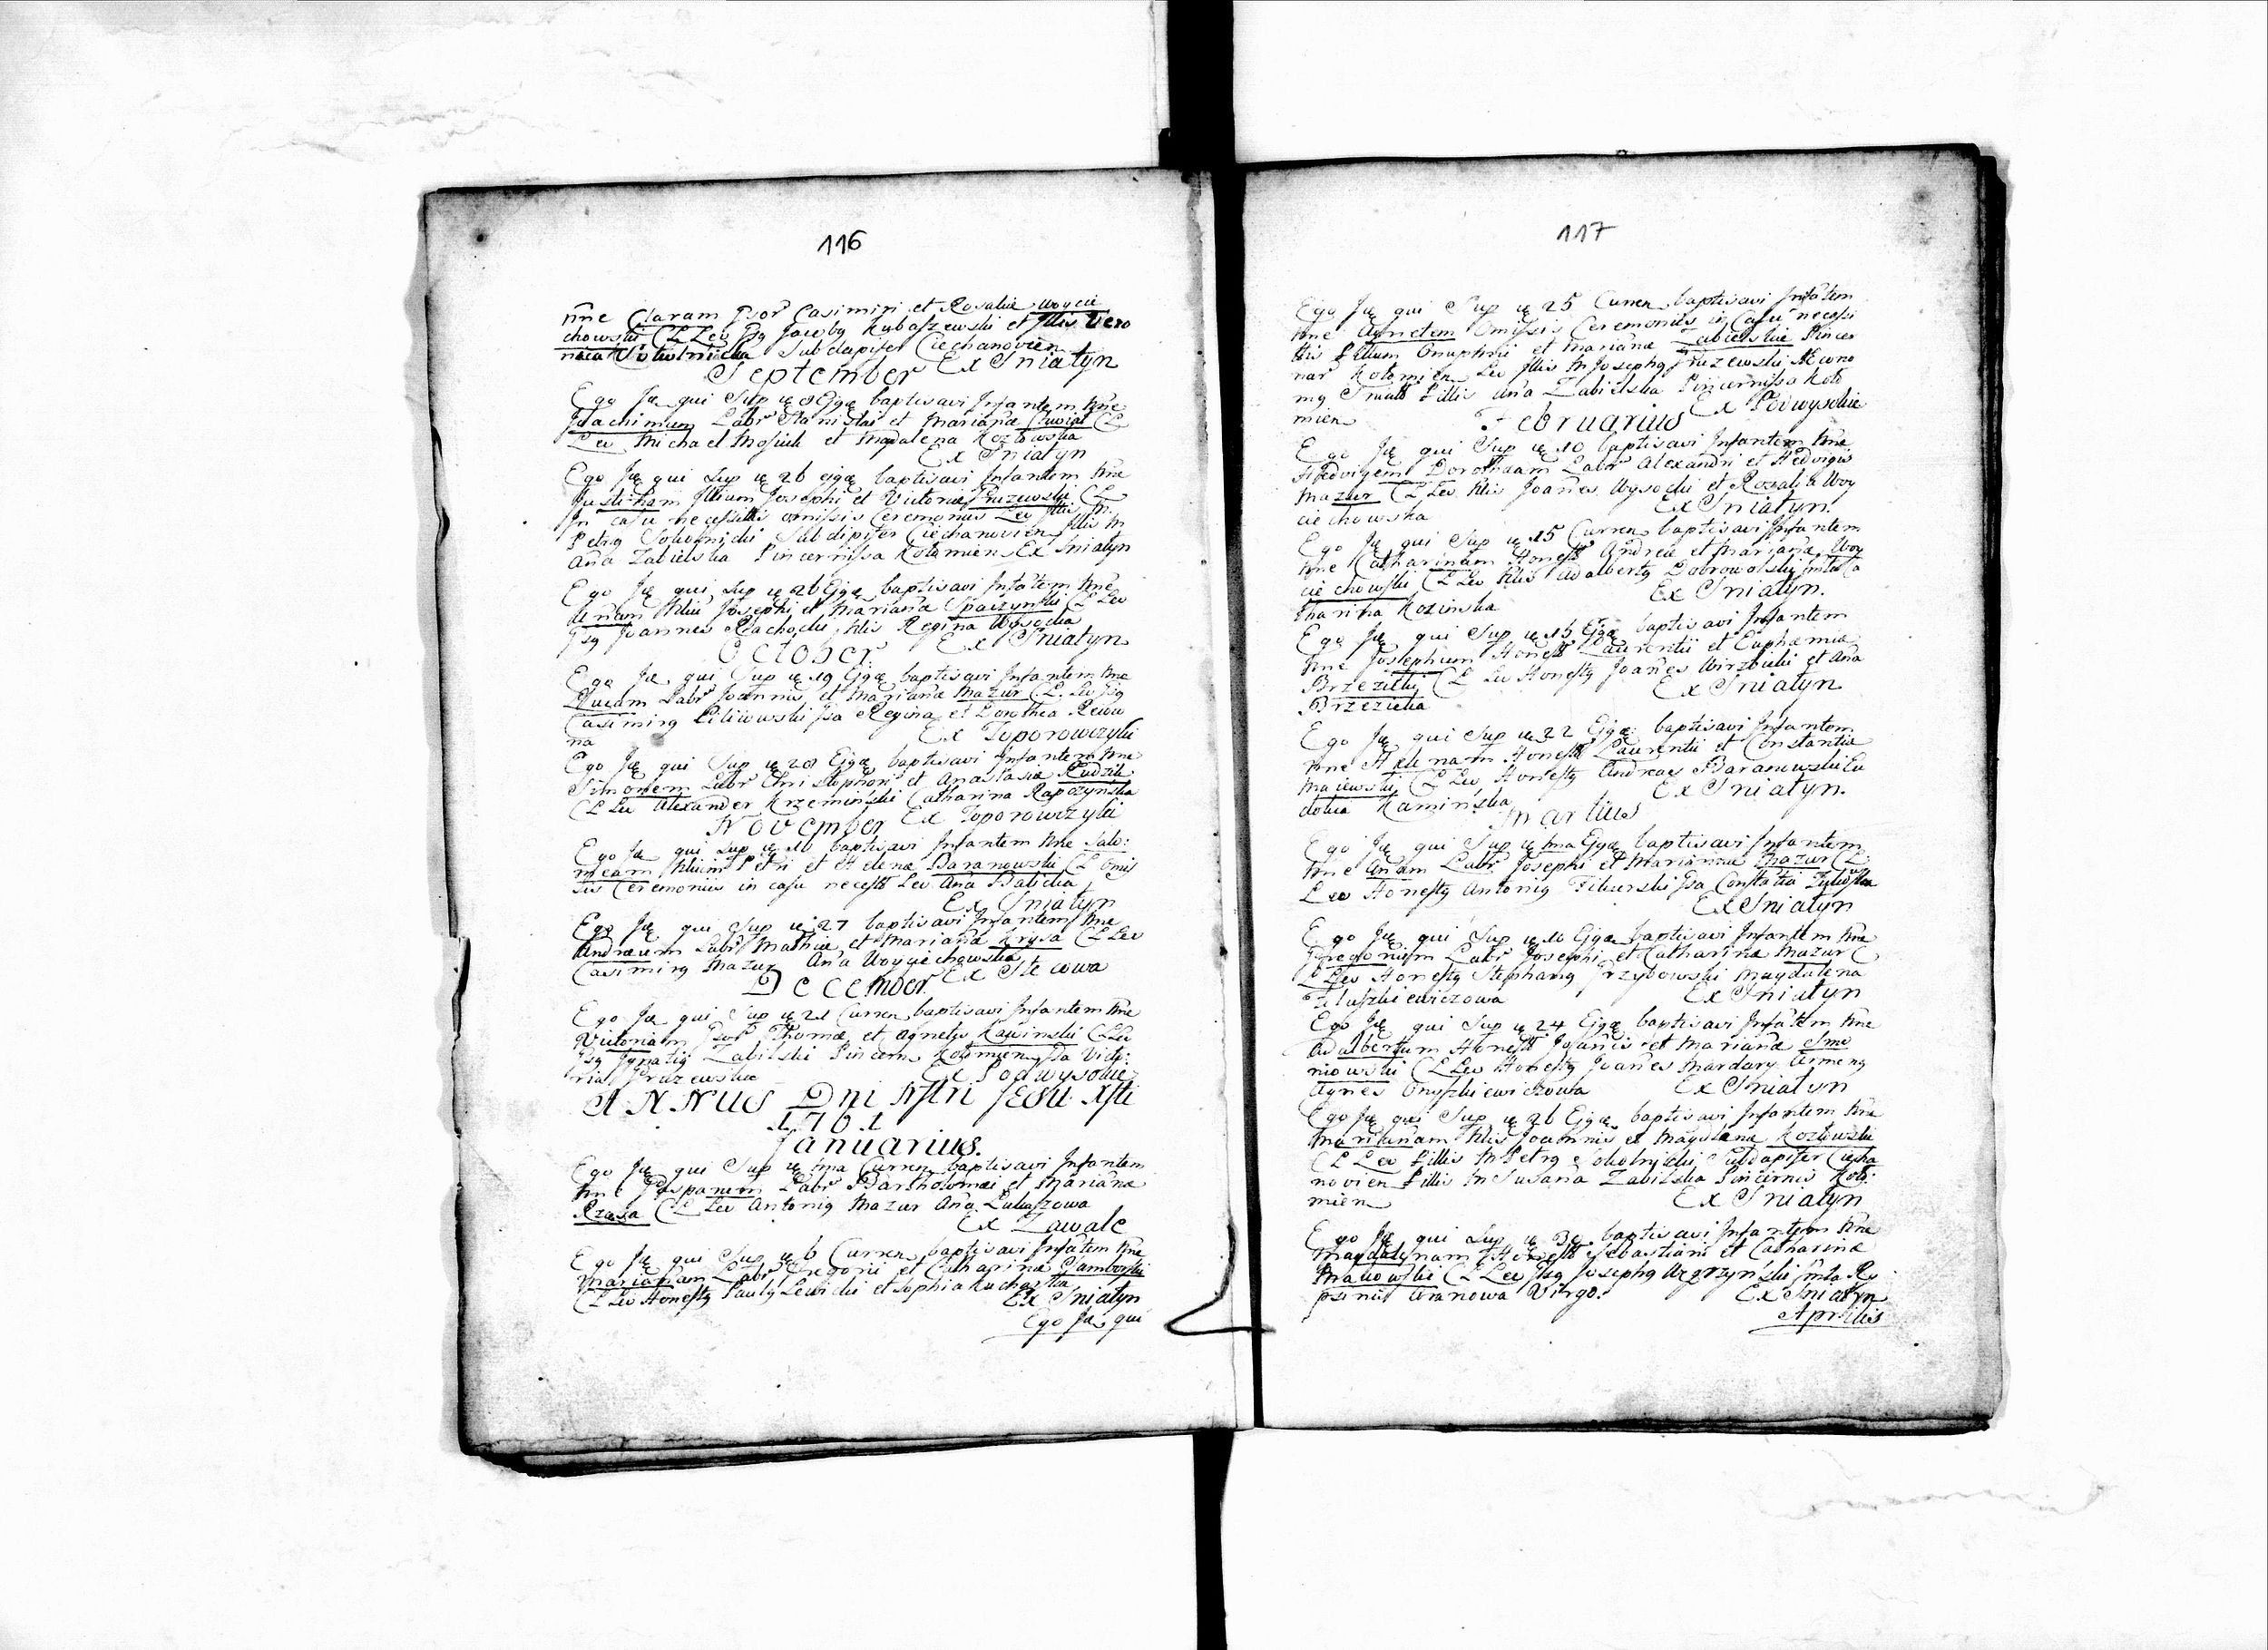 116
nne Claram Gsor Casimiri et Rosaliæ Woycie
chowski CLLev Gsg Jacobg Kubaszewski et Illis Vero
nica Sokolnicka Subdapifer Ciechanovien
Ex Sniatyn
September
Ego Jæ qui Sup 8 Ejgæ baptisavi Infantem nne
Joachimum Labr Stanislai et Mariañæ CL
Lev Michael et Magdalena Kozłowska
Ex Sniatyn
Ego Jæ qui Sup 26 ejgæ baptisavi Infantem nne
Justinam Illium Josephi et Victoriæ Pruzewski CL
In casu necessitts omissis Ceremoniis Lev Illis M
Petrg Sokolnicki Subdapifer Ciechanovien Illis M
Aña Zabielska Pincernissa Kołomien Ex Sniatyn
Ego Jæ qui Sup 26 Ejgæ baptisavi Infãtem nne
Josephi et Mariañæ CLLev
Gsg Joannes Nblis Regina Wysocka
Ex Sniatyn
October
Ego Jæ qui Sup 19 Ejgæ baptisavi Infantem nne
Lucam Labr Joannis et Mariañæ Mazur CL. Lev Gsg
Casimirg Gsa Regina et Dorothea
na
Ex Toporowczyki
Ego Jæ qui Sup 28 Ejgæ baptisavi Infantem nne
Simonem Labr Christophori et Anastasiæ
CLLev Alexander Krzemiński Catharina Rapczynska
Ex Toporowczyki
November
Ego Jæ qui Sup 10 baptisavi Infantem nne Salo:
meam Nblium Petri et Helenæ Baranowski CL Omis
sis Ceremoniis in casu necesst Lev Aña Babicka
Ex Sniatyn
Ego Jæ qui Sup 27 baptisavi Infantem nne
Andream Labr Mathiæ et Mariañæ Krysa CLLev
Casimirg Mazur Aña Woyciechowska
Ex Stecowa
December
Ego Jæ qui Sup 21 Curren baptisavi Infantem nne
Victoriam Gsor Thomæ et Agnetis CLLev
Gsg Ignatig Zabilski Pincern Kołomien Gsa Victo:
ria Pruzewska
Ex Podwysokie
ANNUS Dni Nstri Jesu Xsti
1761
Januarius.
Ego Jæ qui Sup 1ma Curren baptisavi Infantem
nne Gasparem Labr Bartholomæi et Mariañæ
Rzasa CLLev Antonig Mazur Aña Lukaszowa
Ex Zawale
Ego Jæ qui Sup 6 Curren baptisavi Infãtem nne
Marianam Labr Gregorii et Catharinæ Gamborski
CLLev Honestg Paulg Lewicki et Sophia Kucharska
Ex Sniatyn
Ego Jæ qui
117
Ego Jæ qui Sup 25 Curren baptisavi Infãtem
nne Agnetem Omissis Ceremoniis in Casu necessi
ttis Illium Onuphrii et Mariañæ Zabielskie Pincer
nar Kołomien Lev Illis M Josephg Pruzewski Œcono
mg Sniatt Illis Aña Zabielska Pincernissa Koło
mien
Ex Podwysokie
Februarius
Ego Jæ qui Sup 10 baptisavi Infantem nne
Hedvigem Dorotheam Labr Alexandri et Hedvigis
Mazur CLLev Nblis Joañes Wysocki et Rozalia Woy
ciechowska
Ex Sniatyn.
Ego Jæ qui Sup 15 Curren baptisavi Infantem
nne Katharinam Honestt Andreæ et Mariañæ Woy
ciechowski CLLev Nblis Adalbertg Dobrowolski Ca
tharina Kozinska
Ex Sniatyn.
Ego Jæ qui Sup 15 Ejgæ baptisavi Infantem
nne Josephum Honestt Laurentii et Euphemiæ
Brzezicki CL Lev Honestg Joañes Wirzbicki et Aña
Brzezicka
Ex Sniatyn
Ego Jæ qui Sup 22 Ejgæ baptisavi Infantem
nne Helenam Honestt Laurentii et Constantiæ
Majewski CLLev Honestg Andreas Baranowski Eu
dokia Kamińska
Ex Sniatyn.
Martius
Ego Jæ qui Sup 1ma Ejgæ baptisavi Infantem
nne Añam Labr Josephi et Mariannæ Mazur CL
Lev Honestg Antonig Gsa Constatia
Ex Sniatyn
Ego Jæ qui Sup 10 Ejgæ baptisavi Infantem nne
Gregorium Labr Josephi et Catharinæ Mazur C
LLev Honestg Stephang Grzybowski Magdalena
Ex Sniatyn
Ego Jæ qui Sup 24 Ejgæ baptisavi Infãtem nne
Adalbertum Honestt Joañis et Mariañæ Smo
niowski CLLev Honestg Joañes Mardary Armeng
Agnes Onyszkiewiczowa
Ex Sniatyn
Ego Jæ qui Sup 26 Ejgæ baptisavi Infantem nne
Mariañam Nblis Joannis et Magdalenæ Kozłowski
CLLev Illis M Petrg Sokolnicki Subdapifer Ciecha
novien Illis M Susaña Zabilska Pincernis Koło:
mien
Ex Sniatyn
Ego Jæ qui Sup 30 baptisavi Infantem nne
Magdalenam Honestt Sebastiani et Catharinæ
Makowski CLLev Gsg Josephg Węgrzyński
Virgo.
Ex Sniatyn
Aprilis